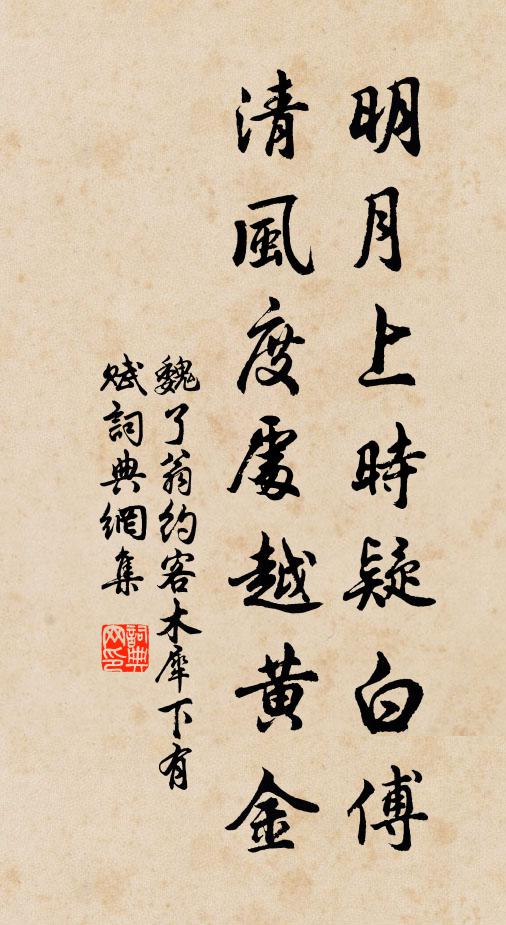 明月上時疑白傅
清風度處越黃金
魏了翁約客木犀下有
賦詞典網集
詞典
网印